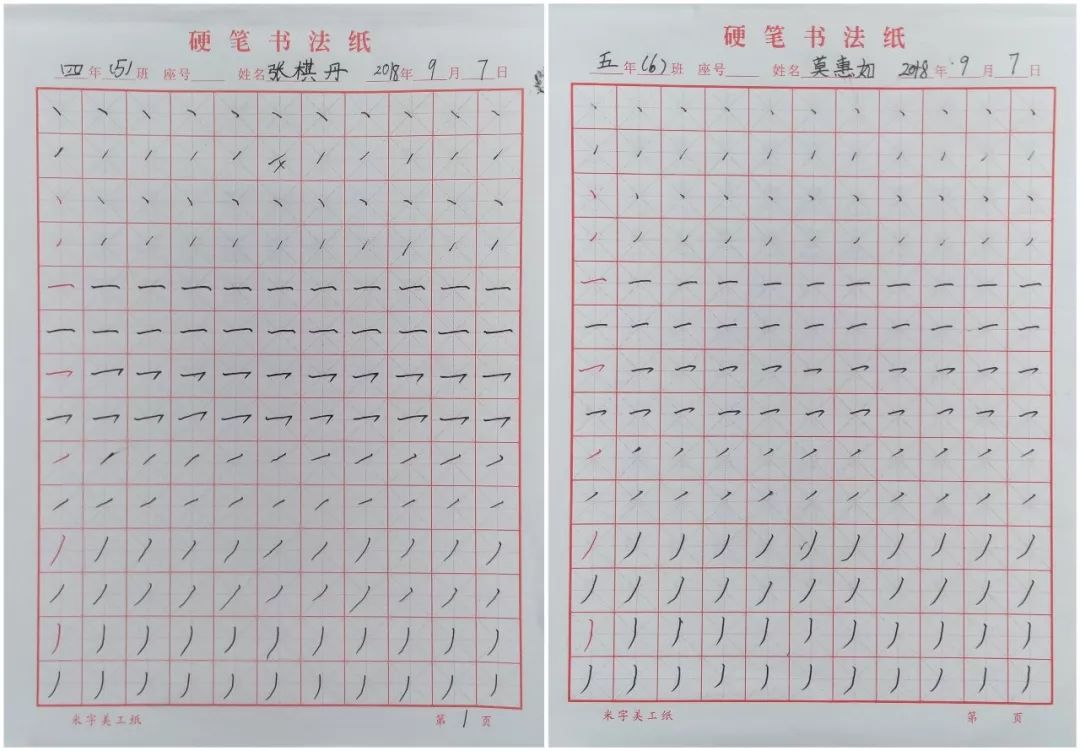 硬笔书法纸
四年(5)班 座号 姓名张棋丹 2018年9月7日
米字美工纸 第1页
硬笔书法纸
五年(6)班 座号 姓名莫惠如 2018年9月7日
米字美工纸 第 页